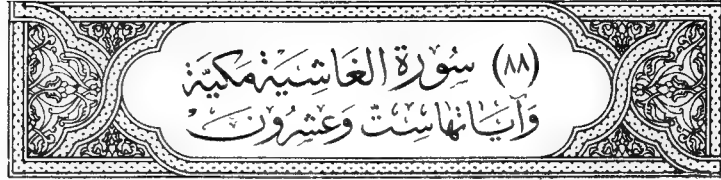 (٨٨) سُوْرَة الغَاشِيَةِ مَكيَّة
وَآيَاتها سِتّ وَعشِرُون